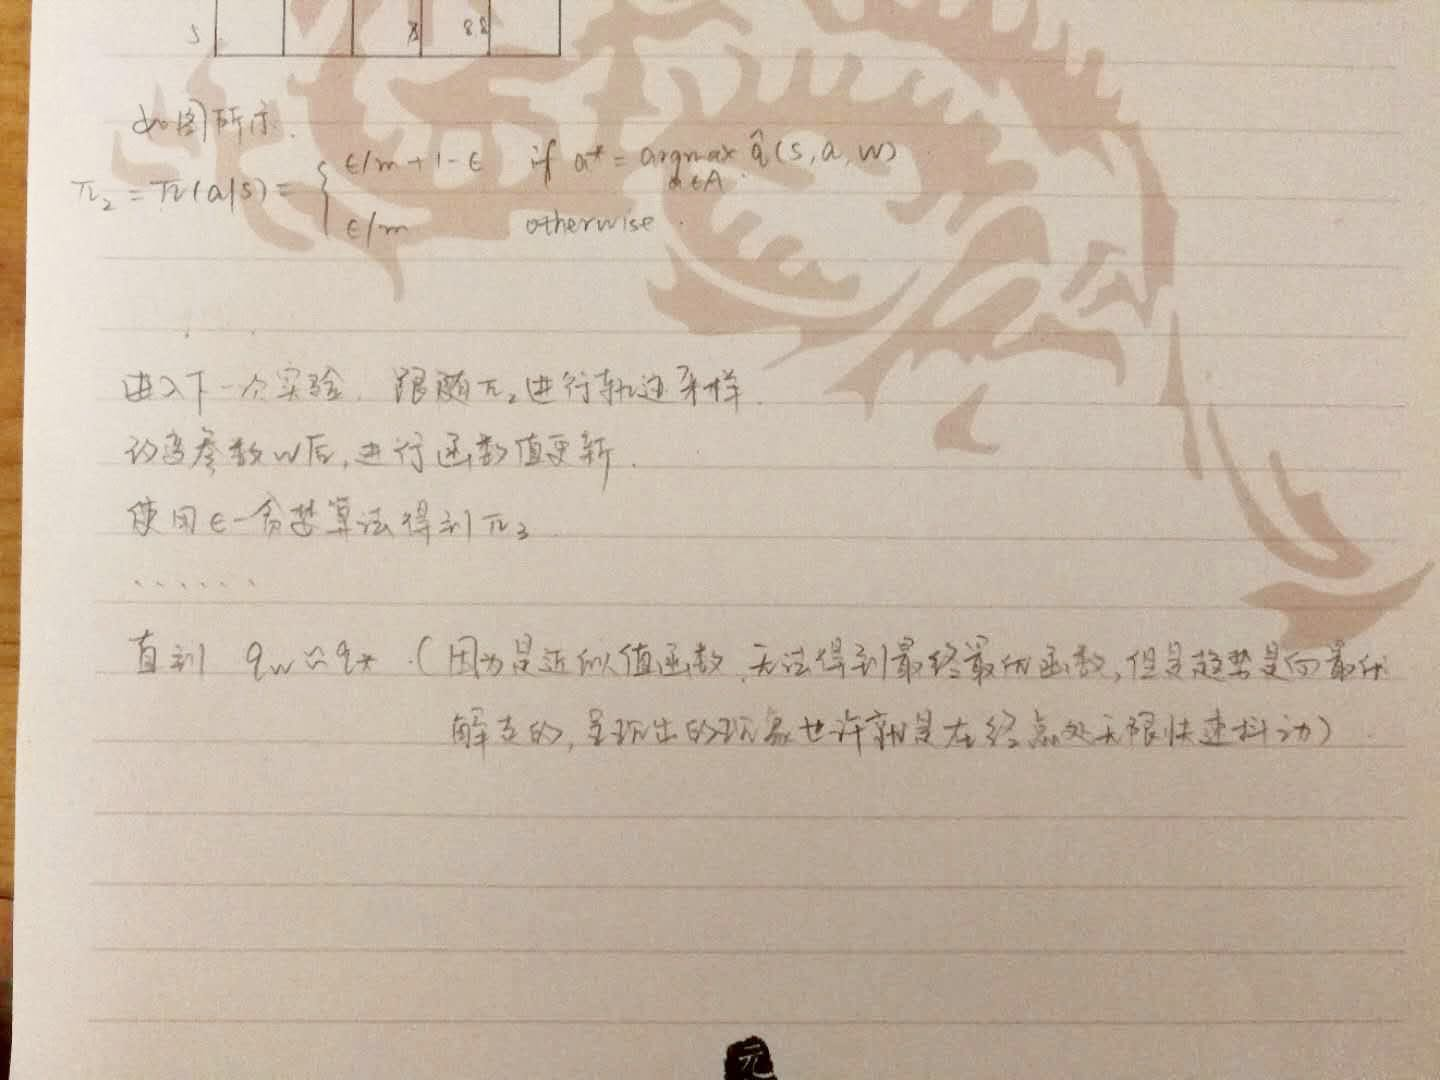 5 8 88
如图所示.
π₂ = π(a|s) = { ϵ/m + 1 - ϵ if a* = argmax q̂(s, a, w)
a∈A
ϵ/m otherwise.
进入下一个实验. 跟随π₂进行轨迹采样.
改变参数w后, 进行函数值更新.
使用ϵ-贪婪算法得到π₃
......
直到 qw ≈ q* .(因为是近似值函数, 无法得到最终最优函数, 但是趋势是向最优
解走的, 呈现出的现象也许就是在终点处无限快速抖动)
元